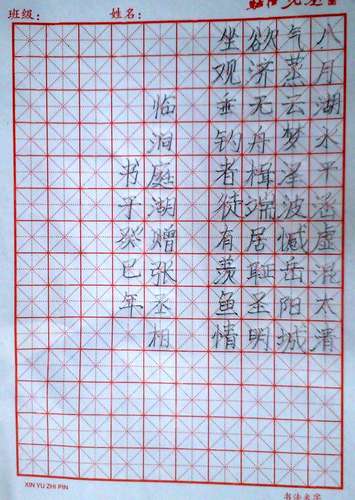 班级:
姓名:
八月湖水平涵虚混太清
气蒸云梦泽波撼岳阳城
欲济无舟楫端居耻圣明
坐观垂钓者徒有羡鱼情
临洞庭湖赠张丞相
书于癸巳年
XIN YU ZHI PIN